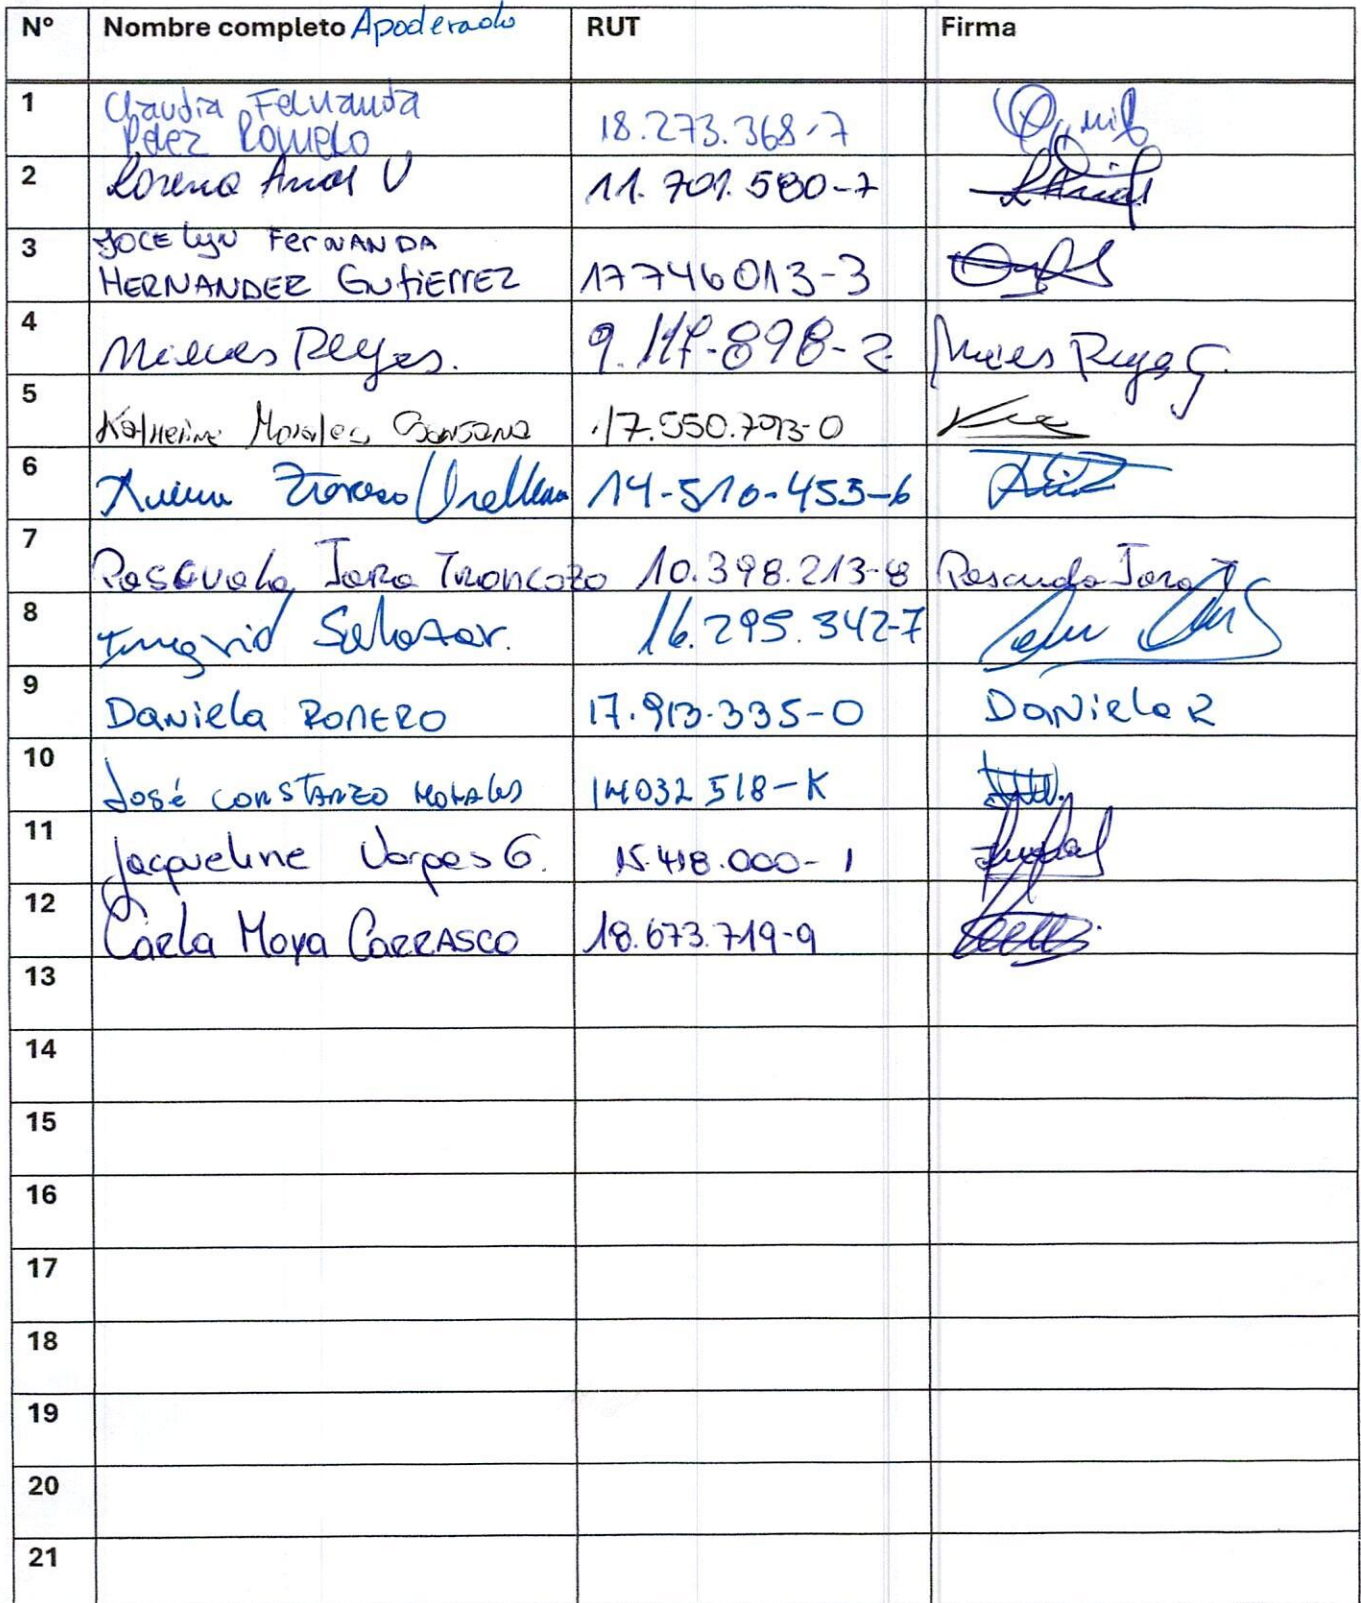 N° Nombre completo Apoderado RUT Firma
1 Claudia Fernanda
Pérez Romero 18.273.368-7
2 Lorena Arias U 11.701.580-7
3 Jocelyn Fernanda
HERNANDEZ Gutierrez 17746013-3
4 Nieves Reyes. 9.117.898-2 Nieves Reyes G.
5 Katherine Morales 17.550.793-0
6 14-510-453-6
7 Pascuala Jara Troncozo 10.398.213-8 Pascuala Jara T
8 Ingrid Salazar. 16.295.342-7
9 Daniela ROMERO 17.913.335-0 Daniela R
10 José CONSTANZO MORALES 14032518-K
11 Jacqueline Vargas G. 15.418.000-1
12 Carla Moya CARRASCO 18.673.719-9
13
14
15
16
17
18
19
20
21